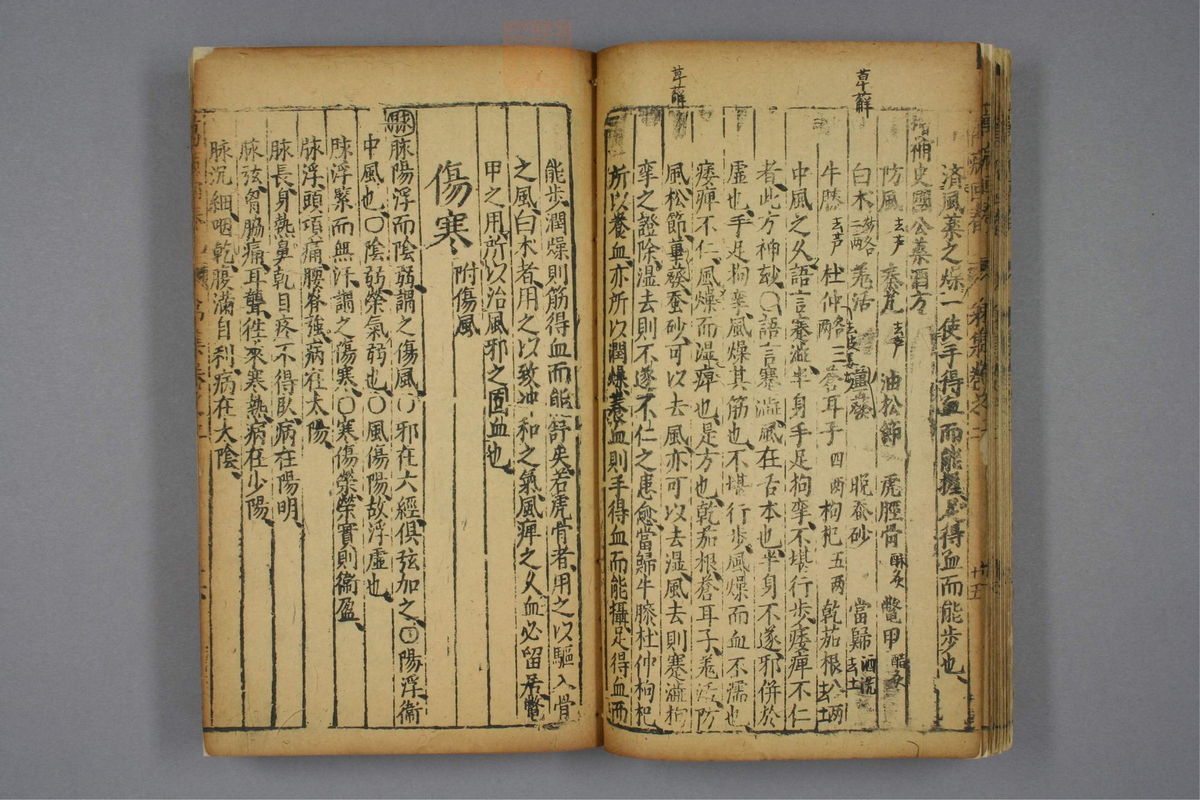 萆薢
萆薢
濟風藥之燥一使手得血而能握足得血而能步也
增補史國公藥酒方
防風去芦 秦艽去芦 油松節 虎脛骨酥炙 鱉甲醋炙
白朮各二兩 羌活 萆薢 晚蚕砂 當歸酒洗去土
牛膝去芦 杜仲各三兩 蒼耳子四两 枸杞五两 乾茄根八两去土
中風之久語言蹇澁半身手足拘攣不堪行步痿痺不仁
者此方神効〇語言蹇澁風在舌本也半身不遂邪併於
虛也手足拘攣風燥其筋也不堪行步風燥而血不濡也
痿痺不仁風燥而湿痺也是方也乾茄根蒼耳子羌活防
風松節萆薢蚕砂可以去風亦可以去湿風去則蹇澁拘
攣之證除湿去則不遂不仁之患愈當歸牛膝杜仲枸杞
所以養血亦所以潤燥養血則手得血而能攝足得血而
能步潤燥則筋得血而能舒矣若虎骨者用之以驅入骨
之風白朮者用之以致冲和之氣風痺之久血必留居鱉
甲之用所以治風邪之固血也
傷寒 附傷風
脉 脉陽浮而陰弱謂之傷風〇邪在六經俱弦加之〇陽浮衞
中風也〇陰弱榮氣弱也〇風傷陽故浮虛也
脉浮緊而無汗謂之傷寒〇寒傷榮榮實則衞盈
脉浮頭項痛腰脊強病在太陽
脉長身熱鼻乾目疼不得臥病在陽明
脉弦脅脇痛耳聾往來寒熱病在少陽
脉沉細咽乾腹滿自利病在太陰